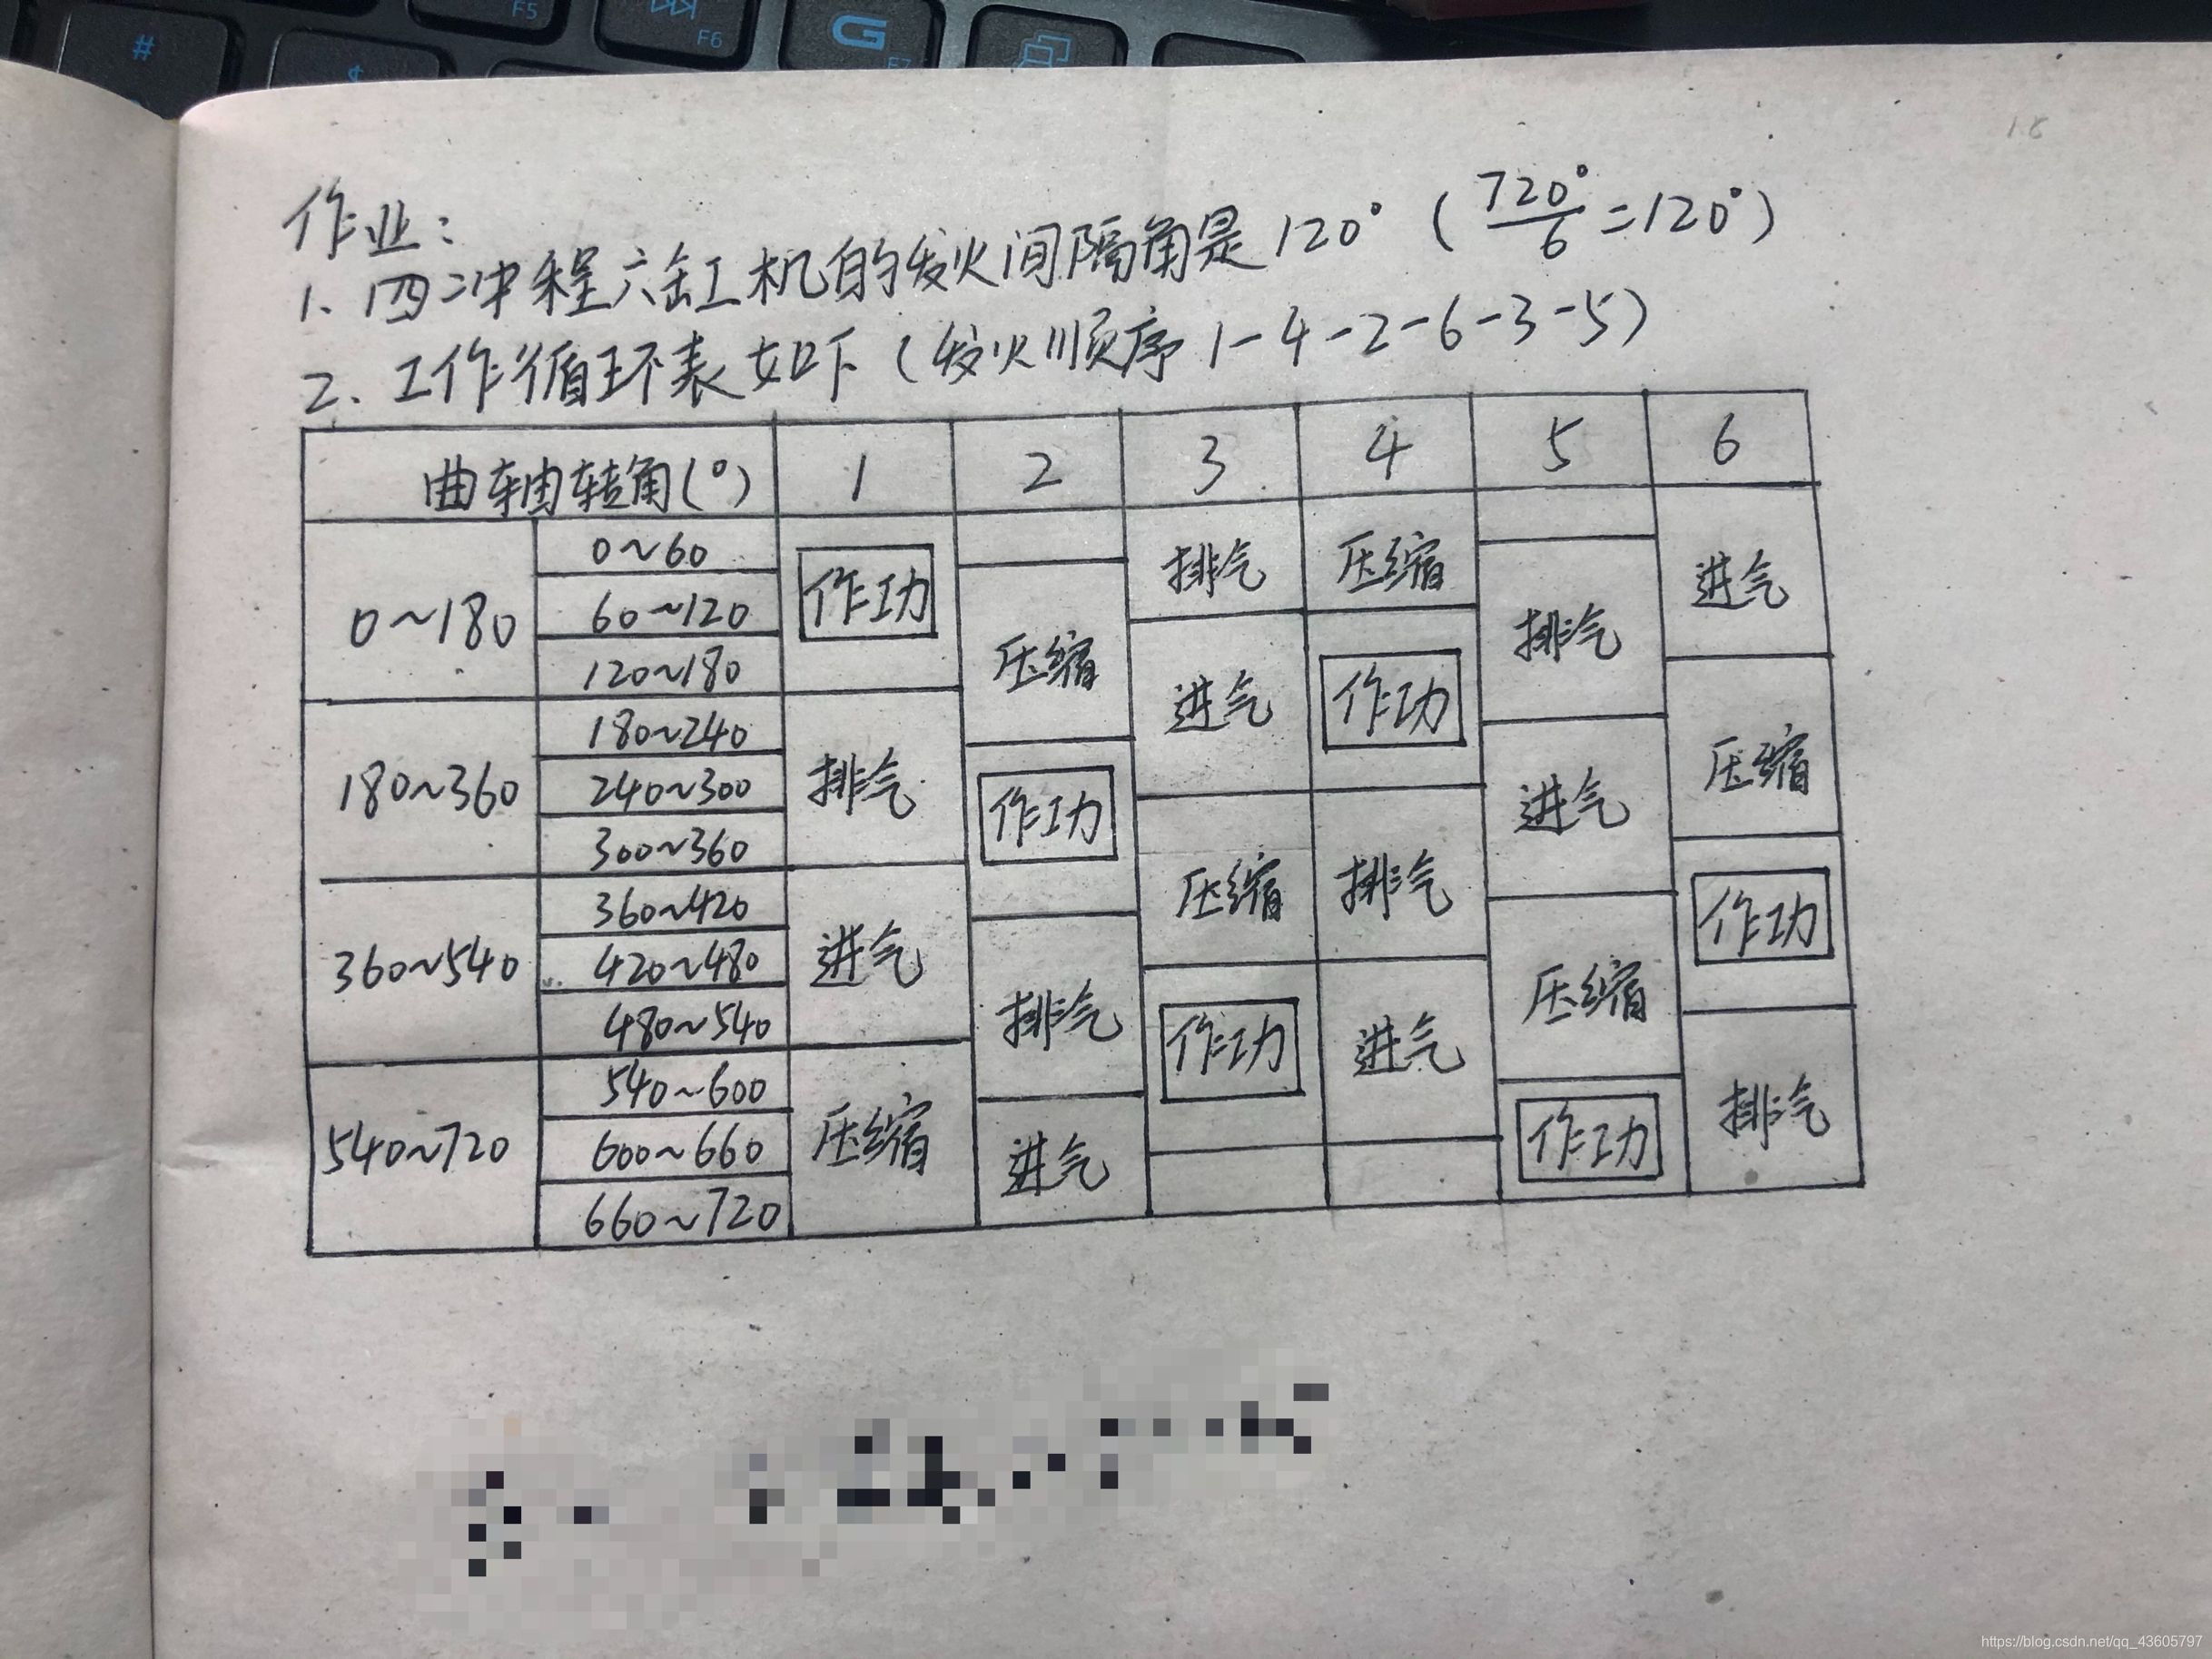 #
$
F5
F6
G
F7
18
作业：
1、四冲程六缸机的发火间隔角是120°（720°/6=120°）
2、工作循环表如下（发火顺序1-4-2-6-3-5）
曲轴转角(°) 1 2 3 4 5 6
0~180 0~60 作功 排气 压缩 进气
60~120 压缩 排气
120~180 进气 作功
180~360 180~240 排气 进气 压缩
240~300 作功
300~360 压缩 排气
360~540 360~420 进气 作功
420~480 排气 压缩
480~540 作功 进气
540~720 540~600 压缩 排气
600~660 进气 作功
660~720
https://blog.csdn.net/qq_43605797